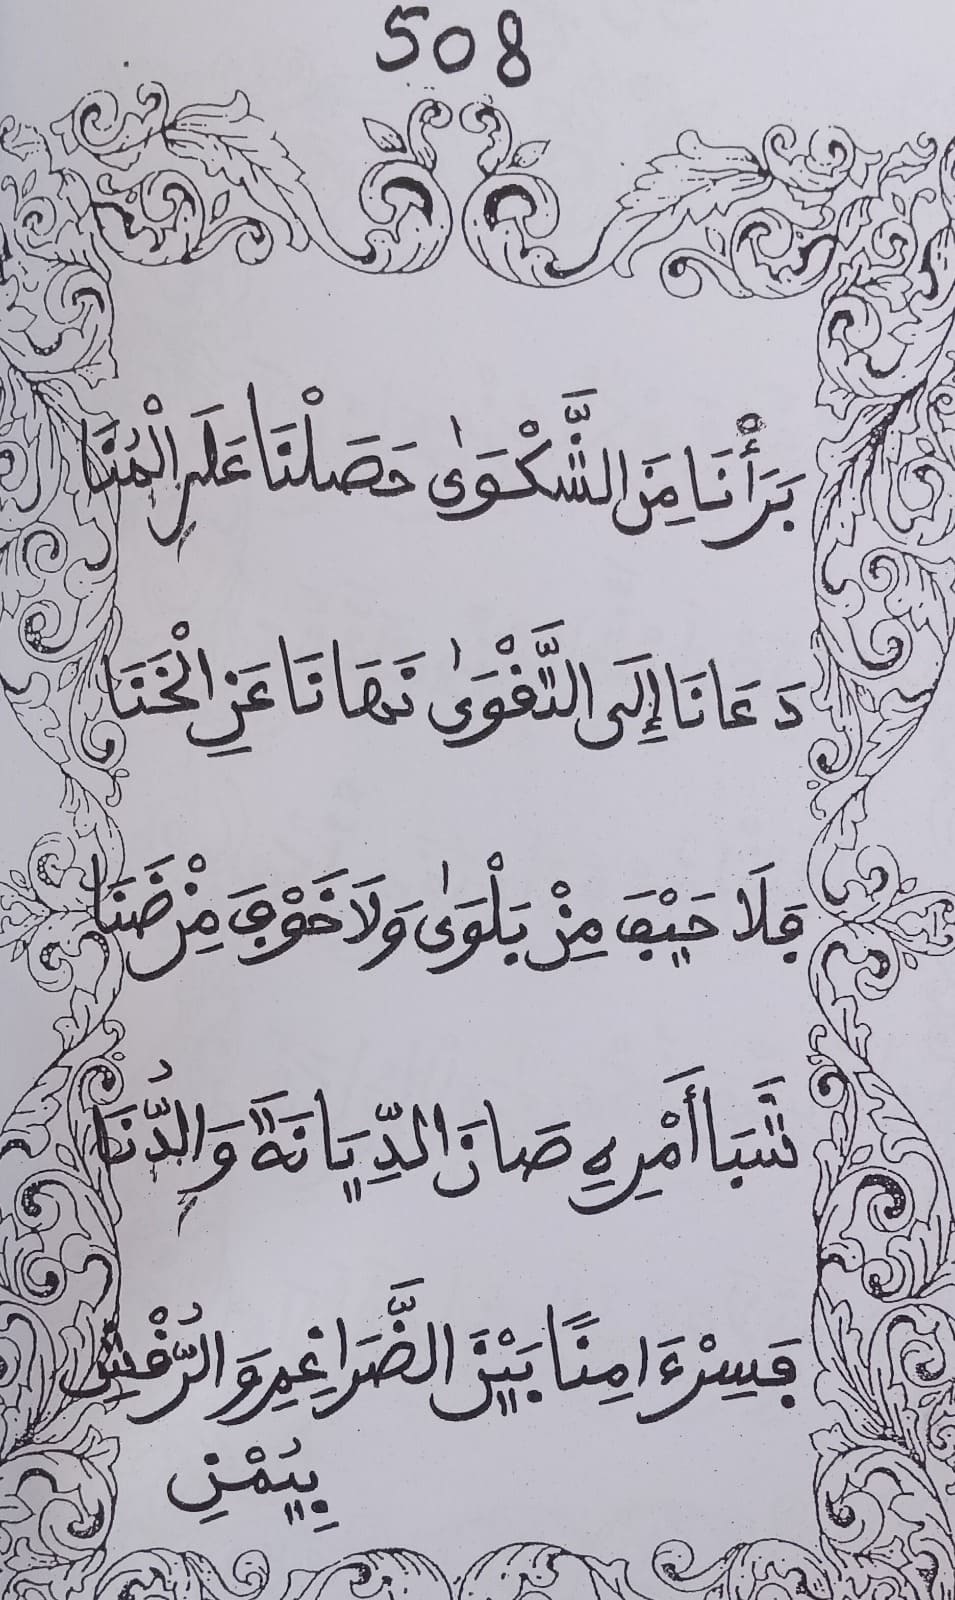 508
بَرَأْنَا مِنَ الشَّكْوَىٰ حَصَلْنَا عَلَى الْمُنَا
دَعَانَا إِلَى التَّقْوَىٰ نَهَانَا عَنِ الْخَنَا
فَلَا حَيْفَ مِنْ بَلْوَىٰ وَلَا خَوْفَ مِنْ ضَنَا
شَبَا أَمْرِهِ صَانَ الدِّيَانَةَ وَالدُّنَا
فَسِرْ ءَامِنًا بَيْنَ الضَّرَاغِمِ وَالرُّقْشِ
بِيُمْنِ